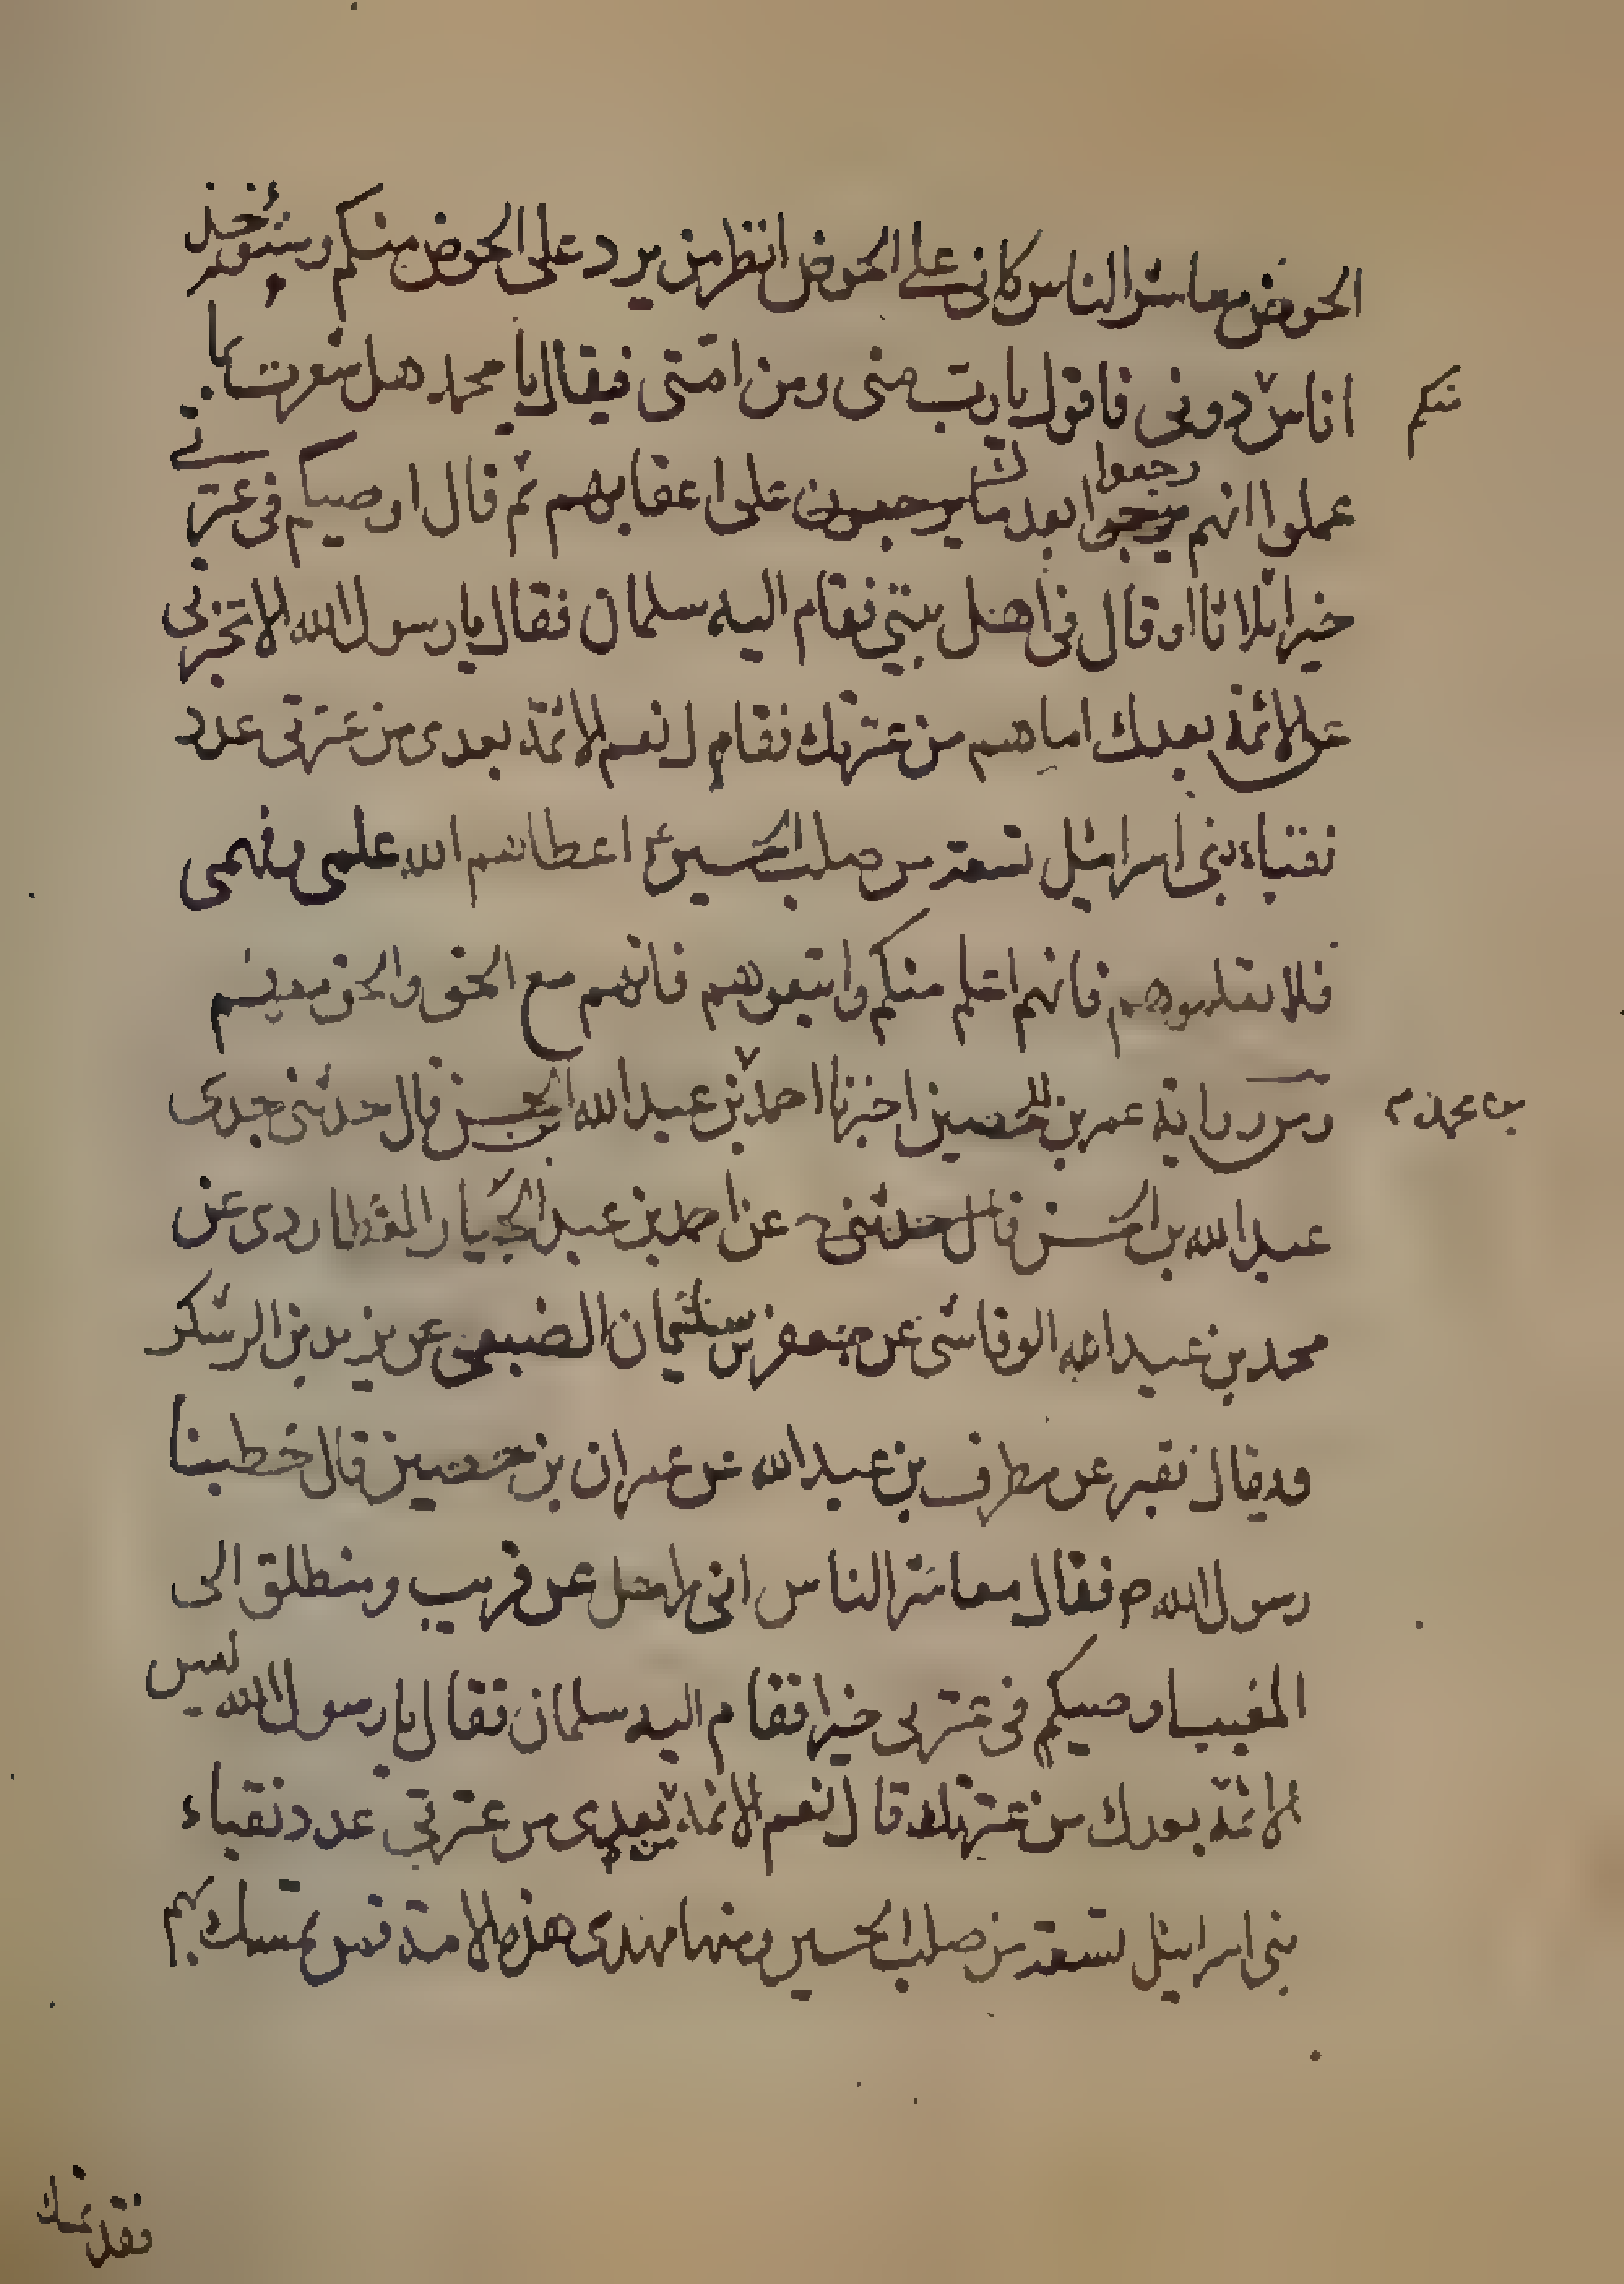 الحوض معاشر الناس كانى على الحوض انتظر من يرد على الحوض منكم وسيؤخذ
اناس دونى فاقول يا رب منى ومن امتى فيقال يا محمد هل شعرت بما
منكم
عملوا انهم رجعوا بعدك على اعقابهم ثم قال اوصيكم فى عترتى
خيرا ثلاثا او قال فى اهل بيتى فقام اليه سلمان فقال يا رسول الله الا تخبرنى
عن الائمة بعدك اما هم من عترتك فقام ل نعم الائمة بعدى من عترتى عدد
نقباء بنى اسرائيل تسعة من صلب الحسين ع اعطاهم الله علمى وفهمى
فلا تعلموهم فانهم اعلم منكم واتبعوهم فانهم مع الحق والحق معهم
ومن رواية عمر بن حصين اخبرنا احمد بن عبد الله الحسن قال حدثنى جدى
بن محمد
عبد الله بن الحسن قال حدثنى عن احمد بن عبد الجبار العطاردى عن
محمد بن عبد الله الوقاشى عن جعفر بن سليمان الضبعى عن يزيد بن الرشكر
ويقال نقير عن مطرف بن عبد الله عن عمران بن حصين قال خطبنا
رسول الله ص فقال معاشر الناس انى راحل عن قريب ومنطلق الى
المغيب اوصيكم فى عترتى خيرا فقام اليه سلمان فقال يا رسول الله ليس
الائمة بعدك من عترتك قال نعم الائمة من بعدى من عترتي عدد نقباء
بنى اسرائيل تسعة من صلب الحسين ومنها مهدى هذه الامة فمن تمسك بهم
فقد تمسك